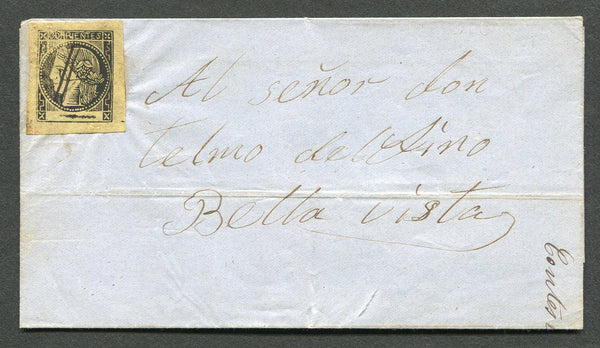 CORRIENTES
Al señor don
Telmo de
Bella vista